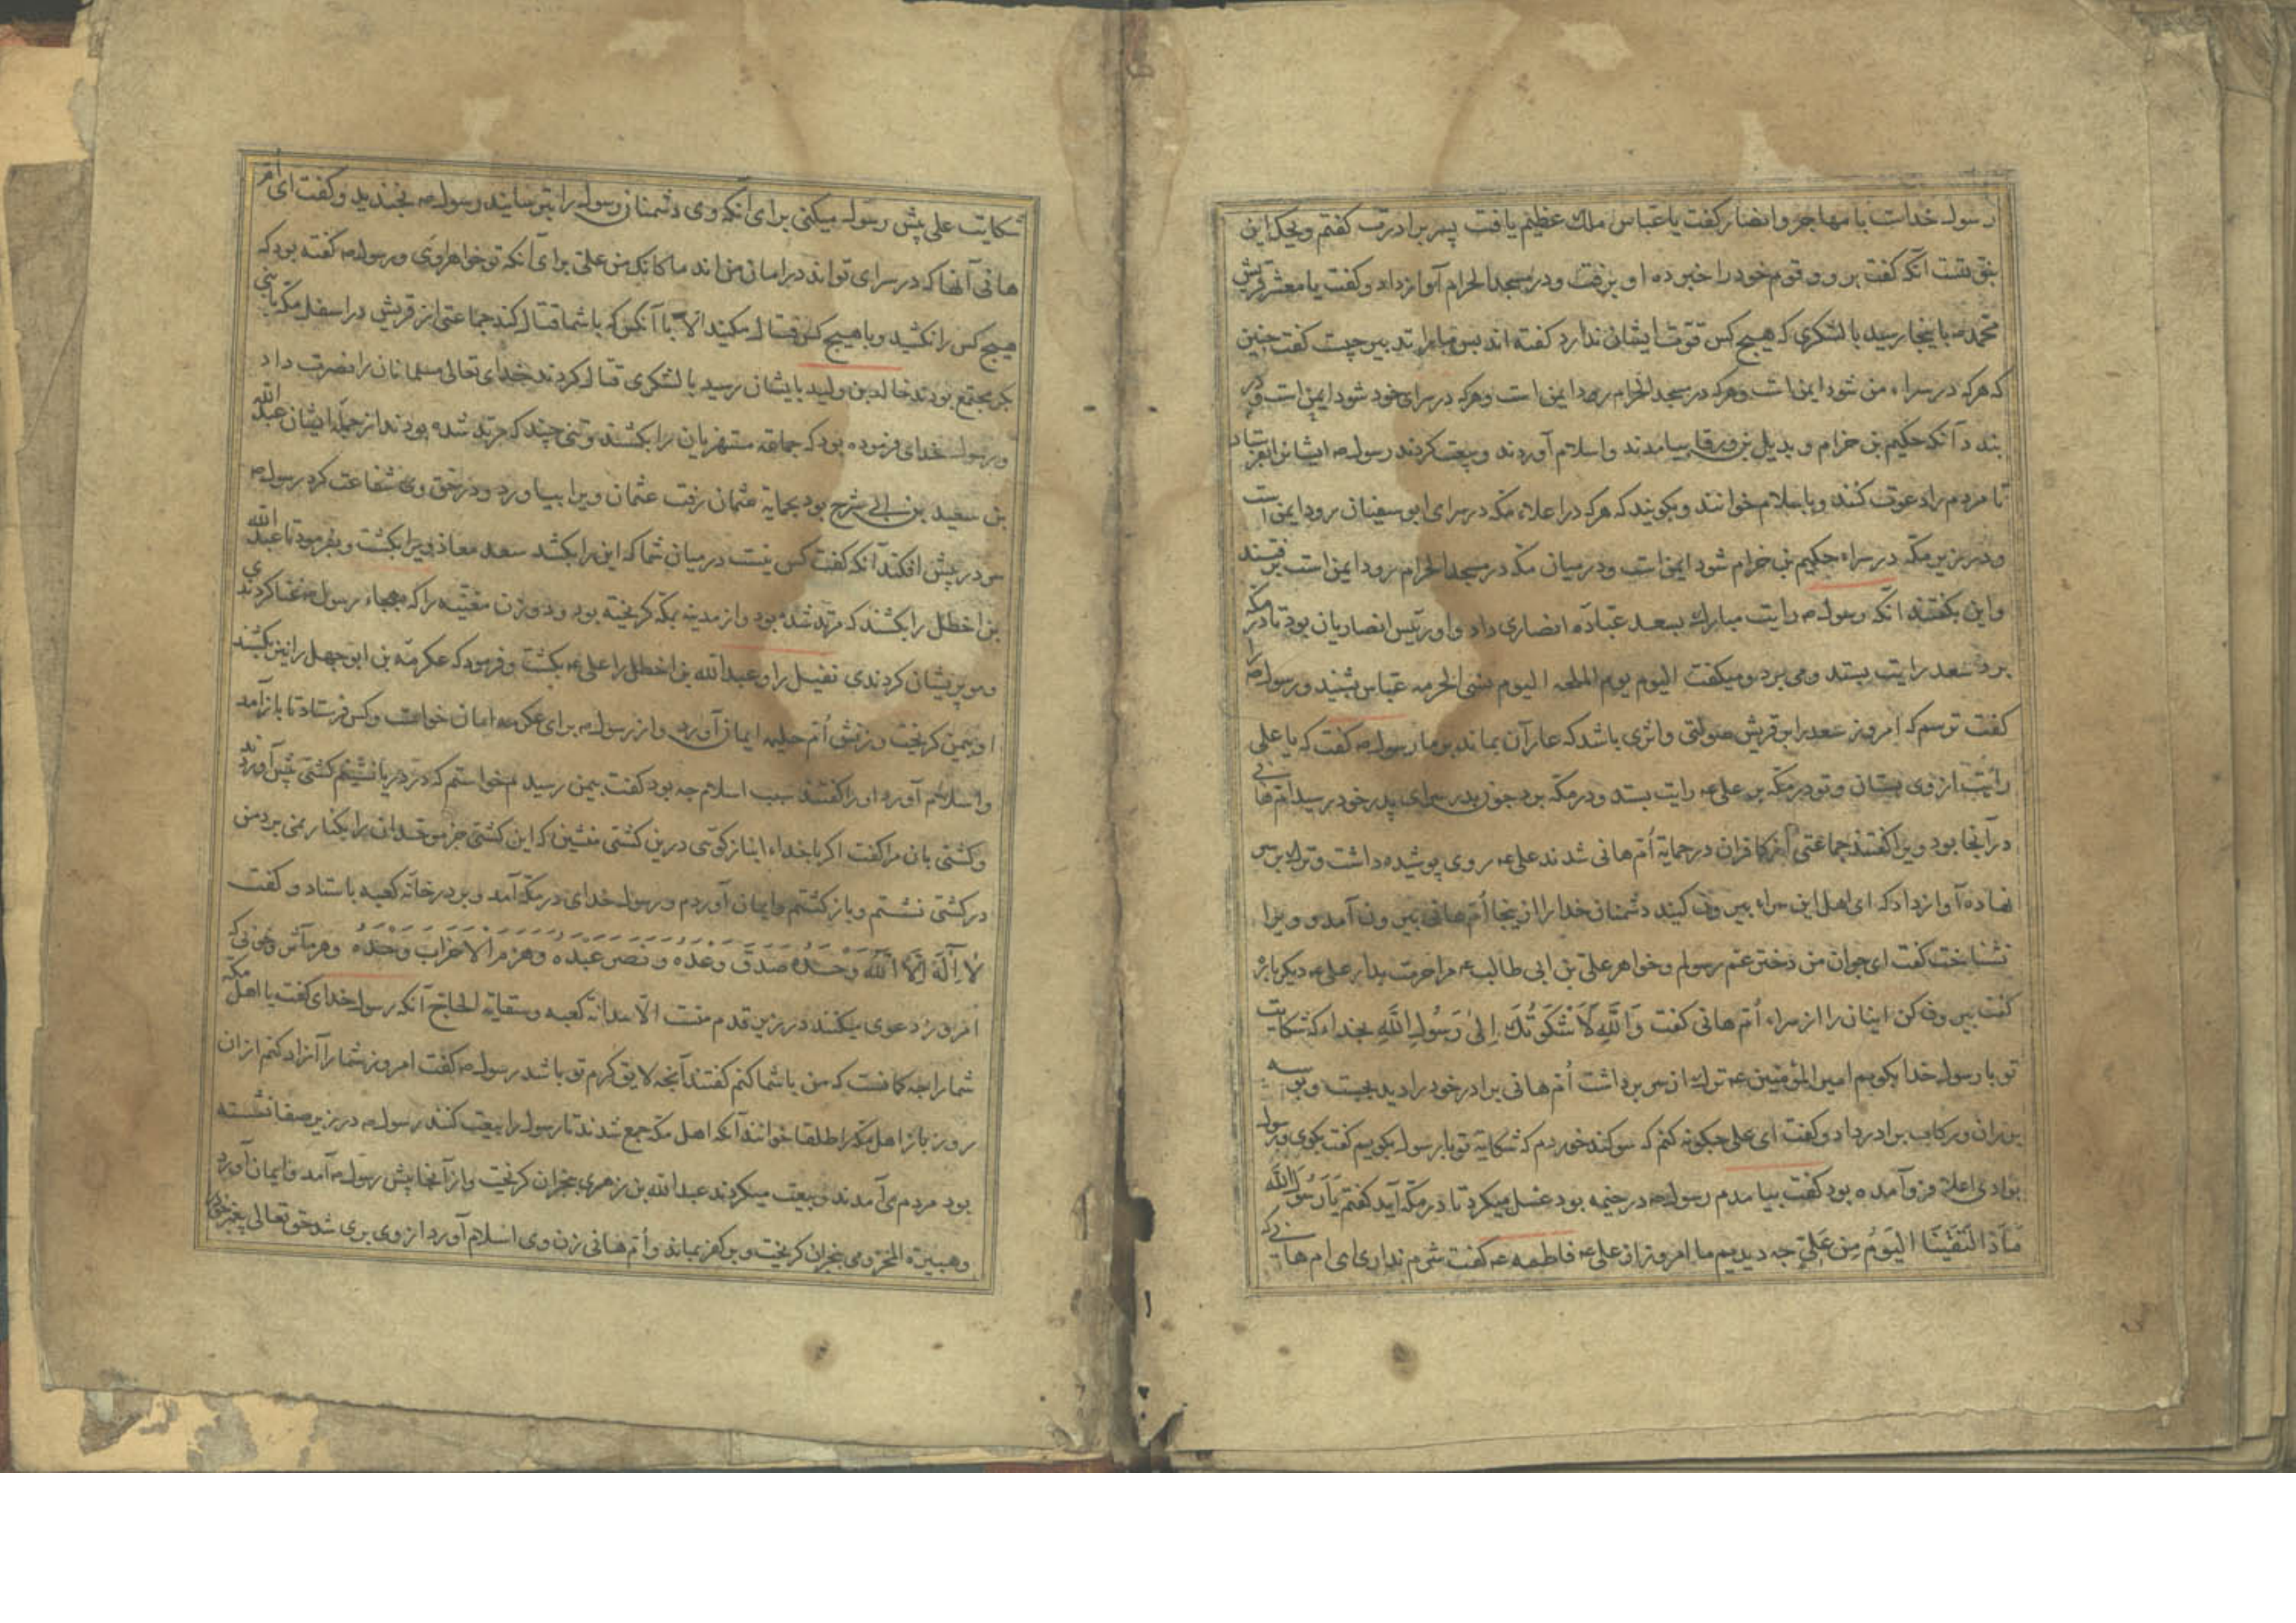 رسول خداست با مهاجر وانصار گفت یا عباس ملک عظیم یافت پسر برادرت گفتم ویحک این
نبوتست آنکه گفت برو و قوم خود را خبر ده او برفت ودر مسجد الحرام آواز داد وگفت یا معشر قریش
محمد ص باینجا رسید با لشکری که هیچ کس قوت ایشان ندارد گفته اند پس مارا تدبیر چیست گفت چنین
که هرکه در سراء من شود ایمن است وهرکه در مسجد الحرام رود ایمن است وهرکه در سرای خود شود ایمن است ودر
بندد آنکه حکیم بن حزام و بدیل بن ورقا بیامدند واسلام آوردند وبیعت کردند رسول ص ایشانرا بفرستاد
تا مردم را دعوت کنند وباسلام خوانند وبگویند که هرکه در اعلاء مکه در سرای ابو سفیان رود ایمن است
ودر زیرین مکه در سراء حکیم بن حزام شود ایمن است ودر میان مکه در مسجد الحرام رود ایمن است برفتند
واین بگفتند آنکه رسول ص رایت مبارک بسعد عباده انصاری داد واو رئیس انصاریان بود تا در مکه
برد سعد رایت بستد ومی برد ومیگفت الیوم یوم الملحمه الیوم تسبی الحرمه عباس بشنید ورسول ص را
گفت ترسم که امروز سعد را بر قریش صولتی واثری باشد که عار آن بماند بر ما رسول ص گفت که یا علی
رایت از وی بستان وتو در مکه بر علی ع رایت بستد ودر مکه برد چون بدر سرای پدر خود رسید ام هانی
در آنجا بود ویرا گفتند جماعتی از کافران در حمایة ام هانی شدند علی ع روی پوشیده داشت وترک بر سر
نهاده آواز داد که ای اهل این سراء بیرون کنید دشمنان خدارا از اینجا ام هانی بیرون آمد و ویرا
نشناخت گفت ای جوان من دختر عم رسولم وخواهر علی بن ابی طالب ع مرا حرمت بدار علی ع دیگر باره
گفت بیرون کن اینان را از سراء ام هانی گفت وَاللّٰهِ لَاَشْکُوَنَّکَ اِلیٰ رَسُولِ اللّٰهِ بخدا که شکایت
تو با رسول خدا بگویم امیر المؤمنین ع ترک از سر برداشت ام هانی برادر خود را دید بجست وبوسه
بر ران ورکاب برادر داد وگفت ای علی چگونه کنم که سوگند خوردم که شکایة تو با رسول بگویم گفت بگوی ورسول
بوادی اعلا فرو آمده بود گفت بیامدم رسول ص در خیمه بود غسل میکرد تا در مکه آید گفتم یَا رَسُولَ اللّٰه
مَاذَا لَقَیْنَا الیَوْمَ مِنْ عَلِیٍّ چه دیدیم ما امروز از علی ع فاطمه ع گفت شرم نداری ای ام هانی که
شکایت علی پیش رسول میکنی برای آنکه وی دشمنان رسول را بترسانید رسول ص بخندید وگفت ای ام
هانی آنها که در سرای تواند در امان من اند ما کانک من علی برای آنکه تو خواهر وی ورسول ص گفته بود که
هیچ کس را نکشید وبا هیچ کس قتال مکنید الا با آنکس که با شما قتال کند جماعتی از قریش در اسفل مکه با بنی
بکر مجتمع بودند خالد بن ولید بایشان رسید با لشکری قتال کردند خدای تعالی مسلمانان را نصرت داد
ورسول خدای فرموده بود که جماعة مستهزیان را بکشند وتنی چند که مرتد شده بودند از جمله ایشان عبد الله
بن سعید بن ابی سرح بود بحمایة عثمان رفت عثمان ویرا بیاورد ودر حق وی شفاعت کرد رسول ص
سر در پیش افکند آنکه گفت کس نیست در میان شما که این را بکشد سعد معاذ ویرا بکشت وبفرمود تا عبد الله
بن اخطل را بکشند که مرتد شده بود واز مدینه بمکه گریخته بود ودو زن مغنیه را که بهجاء رسول ص غنا کردندی
وموی پریشان کردندی نفیل را وعبد الله بن اخطل را علی ع بکشت وفرمود که عکرمة بن ابو جهل را نیز بکشند
او بیمن گریخت وزنش ام حلیم ایمان آورد واز رسول ص برای عکرمه امان خواست وکس فرستاد تا باز آمد
واسلام آورد اورا گفتند سبب اسلام چه بود گفت بیمن رسیدم خواستم که در دریا نشینم کشتی پیش آوردند
وکشتی بان مرا گفت اگر با خداء انباز گوئی درین کشتی منشین که این کشتی جز موحدان را بکنار نمی برد من
در کشتی نشستم وباز گشتم وایمان آوردم ورسول خدای در مکه آمد وبر در خانه کعبه باستاد وگفت
لَا اِلَهَ اِلَّا اللّٰهُ وَحْدَهُ صَدَقَ وَعْدَهُ وَنَصَرَ عَبْدَهُ وَهَزَمَ الاَحْزَابَ وَحْدَهُ وهر مآثر وخونی که
امروز دعوی میکنند در زیر قدم منست الا سدانة کعبه وسقایة الحاج آنکه رسول خدای گفت یا اهل مکه
شمارا چه کافست که من با شما کنم گفتند آنچه لایق کرم تو باشد رسول ص گفت امروز شمارا آزاد کنم از ان
روز باز اهل مکه را طلقا خوانند آنکه اهل مکه جمع شدند تا رسول را بیعت کنند رسول ص در زیر صفا نشسته
بود مردم می آمدند وبیعت میکردند عبد الله بن زهری بنجران گریخت واز آنجا پیش رسول ص آمد وایمان آورد
وهبیرة المخزومی بنجران گریخت وبر کفر بماند وام هانی زن وی اسلام آورد از وی بری شد حق تعالی پیغمبر خود را